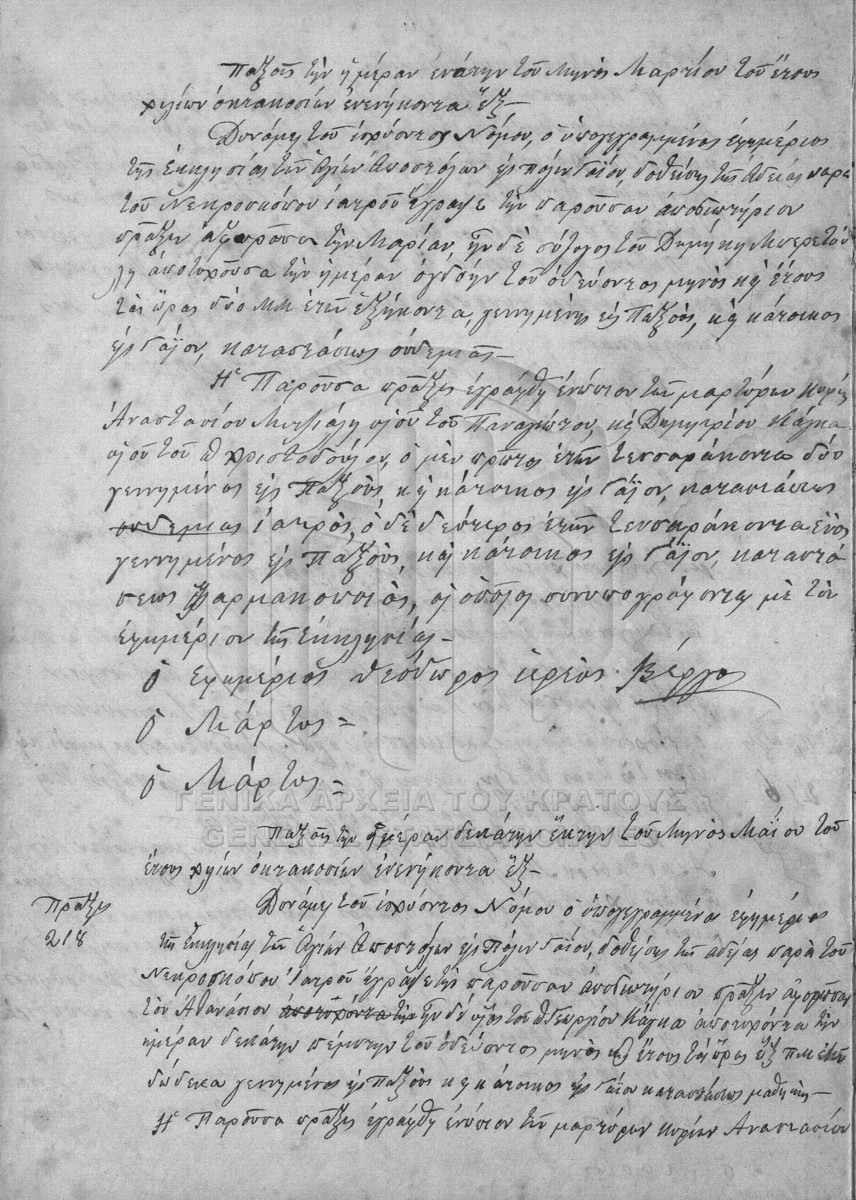 Παξοῖς τὴν ἡμέραν ἐνάτην τοῦ Μηνὸς Μαρτίου τοῦ ἔτους
χιλίων ὀκτακοσίων ἐνενήκοντα ἕξ –
Δυνάμει τοῦ ἰσχύοντος Νόμου, ὁ ὑπογεγραμμένος ἐφημέριος
τῆς ἐκκλησίας τῶν Ἁγίων Ἀποστόλων εἰς πόλιν Γαΐου, δοθείσης τῆς ἀδείας παρὰ
τοῦ Νεκροσκόπου ἰατροῦ ἔγραψε τὴν παροῦσαν ἀποβιωτήριον
πρᾶξιν ἀφορῶσα τὴν Μαρίαν, σύζυγος τοῦ Δημήκη
ἀποτυχοῦσα τὴν ἡμέραν ὀγδόην τοῦ ὁδεύοντος μηνὸς κὴ ἔτους
τὰς ὥρας δύο Μ.Μ ἐτῶν ἑξήκοντα, γεννημένης εἰς Παξοὺς, κὴ κάτοικος
εἰς Γάϊον, καταστάσεως οὐδεμιᾶς –
Ἡ Παροῦσα πρᾶξις ἐγράφθη ἐνώπιον τῶν μαρτύρων Κυρίων
Ἀναστασίου υἱοῦ τοῦ Παναγιώτου, κὴ Δημητρίου Μάγκα
υἱοῦ τοῦ π Χριστοδούλου, ὁ μὲν πρῶτος ἐτῶν τεσσαράκοντα δύο
γεννημένος εἰς Παξοὺς, κὴ κάτοικος εἰς Γάϊον, καταστάσεως
οὐδεμιας ἰατρὸς, ὁ δὲ δεύτερος ἐτῶν τεσσαράκοντα ἑνὸς
γεννημένος εἰς Παξοὺς, κὴ κάτοικος εἰς Γάϊον, καταστά
σεως Φαρμακοποιὸς, οἱ ὁποῖοι συνυπογράφονται μὲ τὸν
ἐφημέριον τῆς ἐκκλησίας –
ὁ Ἐφημέριος Θεόδωρος ἱερεὺς Βέργος
ὁ Μάρτυς =
ὁ Μάρτυς =
ΓΕΝΙΚΑ ΑΡΧΕΙΑ ΤΟΥ ΚΡΑΤΟΥΣ
GENERAL STATE ARCHIVES
Παξοῖς τὴν ἡμέραν δεκάτην ἕκτην τοῦ Μηνὸς Μαΐου τοῦ
ἔτους χιλίων ὀκτακοσίων ἐνενήκοντα ἕξ –
Πρᾶξις
218
Δυνάμει τοῦ ἰσχύοντος Νόμου ὁ ὑπογεγραμμένος ἐφημέριος
τῆς Ἐκκλησίας τῶν Ἁγίων Ἀποστόλων εἰς Πόλιν Γαΐου, δοθείσης τῆς ἀδείας παρὰ τοῦ
Νεκροσκόπου Ἰατροῦ ἔγραψε τὴν παροῦσαν ἀποβιωτήριον πρᾶξιν ἀφορῶσας
τὸν Ἀθανάσιον υἱὸς τοῦ π Γεωργίου Μάγκα ἀποτυχόντα τὴν
ἡμέραν δεκάτην πέμπτην τοῦ ὁδεύοντος μηνὸς κὴ ἔτους τὰς ὥρας ἕξ π.μ ἐτῶν
δώδεκα γεννημένος εἰς Παξοὺς κὴ κάτοικος εἰς Γάϊον καταστάσεως μαθητὴς –
Ἡ Παροῦσα πρᾶξις ἐγράφθη ἐνώπιον τῶν μαρτύρων κυρίων Ἀναστασίου